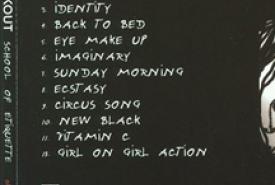 3. IDENTITY
4. BACK TO BED
5. EYE MAKE UP
6. IMAGINARY
7. SUNDAY MORNING
8. ECSTASY
9. CIRCUS SONG
10. NEW BLACK
11. VITAMIN C
12. GIRL ON GIRL ACTION
KOUT SCHOOL OF ETIQUETTE